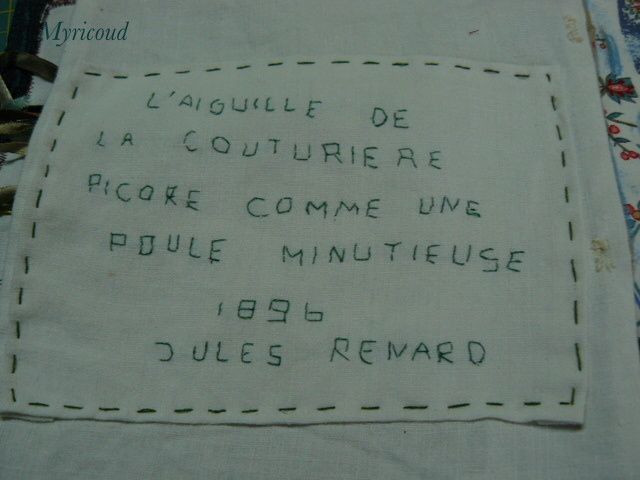 Myricoud
L'AIGUILLE DE
LA COUTURIERE
PICORE COMME UNE
POULE MINUTIEUSE
1896
JULES RENARD